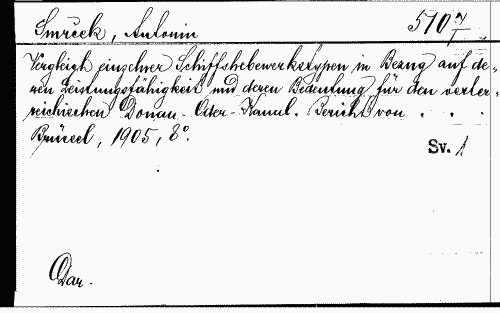 Smrček, Antonin 510 4/I
Vergleich einzelner Schiffshebewerkstypen in Bezug auf de-
ren Leistungsfähigkeit und deren Bedeutung für den oester-
reichischen Donau-Oder-Kanal. Bericht von . . .
Brüssel, 1905, 8°.
Sv. 1
Dar.